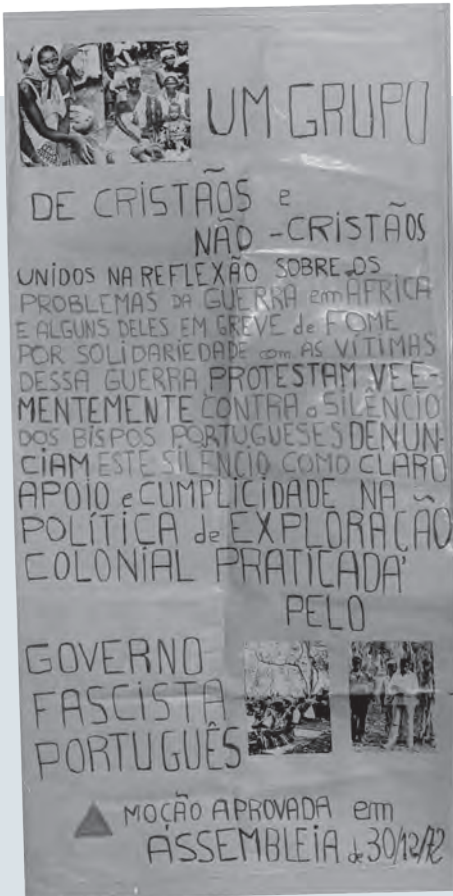 UM GRUPO
DE CRISTÃOS e
NÃO - CRISTÃOS
UNIDOS NA REFLEXÃO SOBRE OS
PROBLEMAS DA GUERRA em AFRICA
E ALGUNS DELES EM GREVE de FOME
POR SOLIDARIEDADE com AS VÍTIMAS
DESSA GUERRA PROTESTAM VEE-
MENTEMENTE CONTRA o SILÊNCIO
DOS BISPOS PORTUGUESES DENUN-
CIAM ESTE SILÊNCIO COMO CLARO
APOIO e CUMPLICIDADE NA
POLÍTICA de EXPLORAÇÃO
COLONIAL PRATICADA
PELO
GOVERNO
FASCISTA
PORTUGUÊS
MOÇÃO APROVADA em
ASSEMBLEIA de 30/12/72